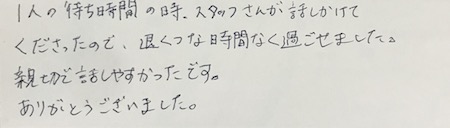 1人の待ち時間の時、スタッフさんが話しかけて
くださったので、退くつな時間なく過ごせました。
親切で話しやすかったです。
ありがとうございました。